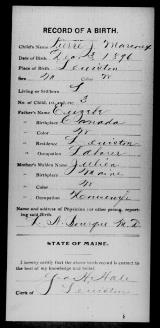 RECORD OF A BIRTH.
Child's Name, Pierre J.
Date of Birth, Dec 3, 1896
Place of Birth, Lewiston
Sex M Color W
Living or Stillborn L
No. of Child, 1st, 2nd, etc. 3
Father's Name,
" Birthplace, Canada
" Color W
" Residence Lewiston
" Occupation Laborer
Mother's Maiden Name,
" Birthplace Maine
" Color W
" Occupation Housewife
Name and address of Physician (or other person), reporting said Birth.
M.D.
STATE OF MAINE.
I hereby certify that the above birth record is correct to the best of my knowledge and belief.
Hale
Clerk of Lewiston